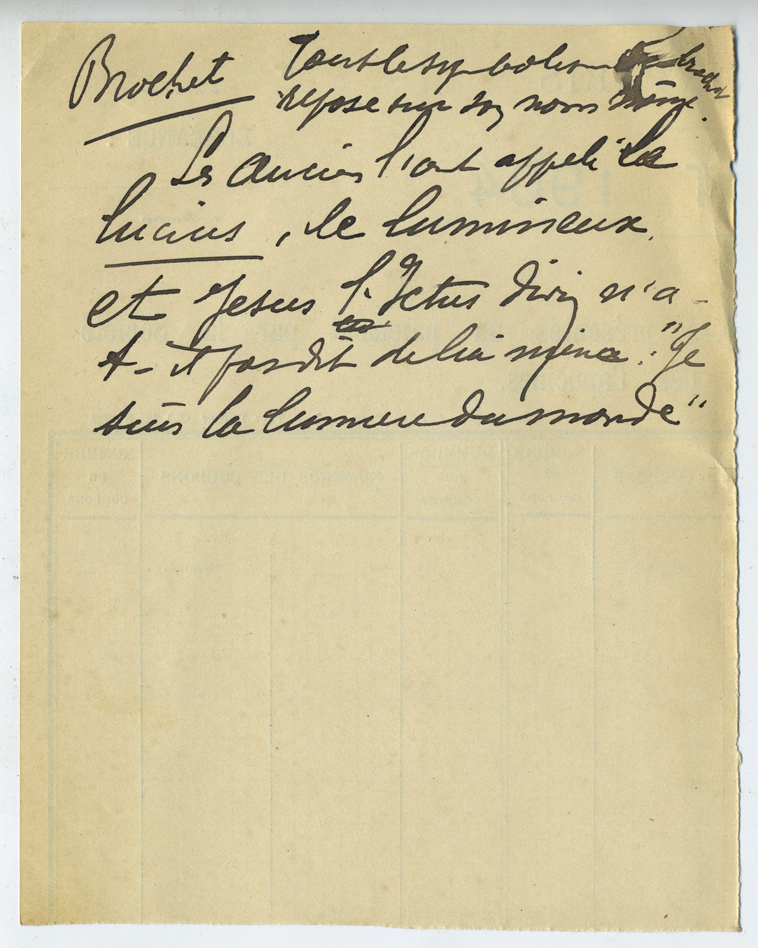 Brochet Tout le symbolisme du brochet
repose sur son nom même.
Les anciens l'ont appelé le
lucius, le lumineux,
et Jesus l'Ictus divin n'a-
t-il pas dit de lui même : "Je
suis la lumiere du monde"